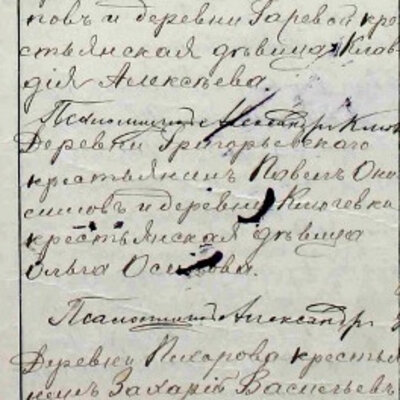 повъ и деревни Гаревой кре
стьянская дѣвица Клав
дія Алексѣева.
Псаломщикъ Александръ
Деревни Григорьевскаго
крестьянинъ Павелъ Они
симовъ и деревни Ключевка
крестьянская дѣвица
Ольга Осипова.
Псаломщикъ Александръ
Деревни Пихарова крестья
нинъ Захарій Васильевъ